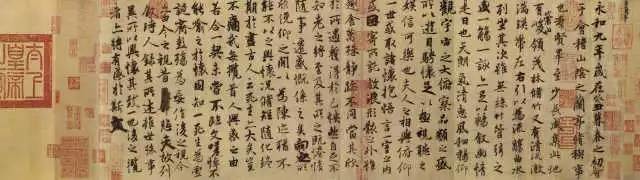 永和九年歲在癸丑暮春之初會
于會稽山陰之蘭亭脩禊事
也群賢畢至少長咸集此地
有崇山峻領茂林脩竹又有清流激
湍暎帶左右引以為流觴曲水
列坐其次雖無絲竹管弦之
盛一觴一詠亦足以暢敘幽情
是日也天朗氣清惠風和暢仰
觀宇宙之大俯察品類之盛
所以遊目騁懷足以極視聽之
娛信可樂也夫人之相與俯仰
一世或取諸懷抱悟言一室之內
或因寄所託放浪形骸之外雖
趣舍萬殊靜躁不同當其欣
於所遇蹔得於己怏然自足不
知老之將至及其所之既惓情
隨事遷感慨係之矣向之所
欣俛仰之閒以為陳迹猶不
能不以之興懷況脩短隨化終
期於盡古人云死生亦大矣豈
不痛哉每攬昔人興感之由
若合一契未嘗不臨文嗟悼不
能喻之於懷固知一死生為虛
誕齊彭殤為妄作後之視今
亦由今之視昔悲夫故列
敘時人錄其所述雖世殊事
異所以興懷其致一也後之攬
者亦將有感於斯文
太上皇帝